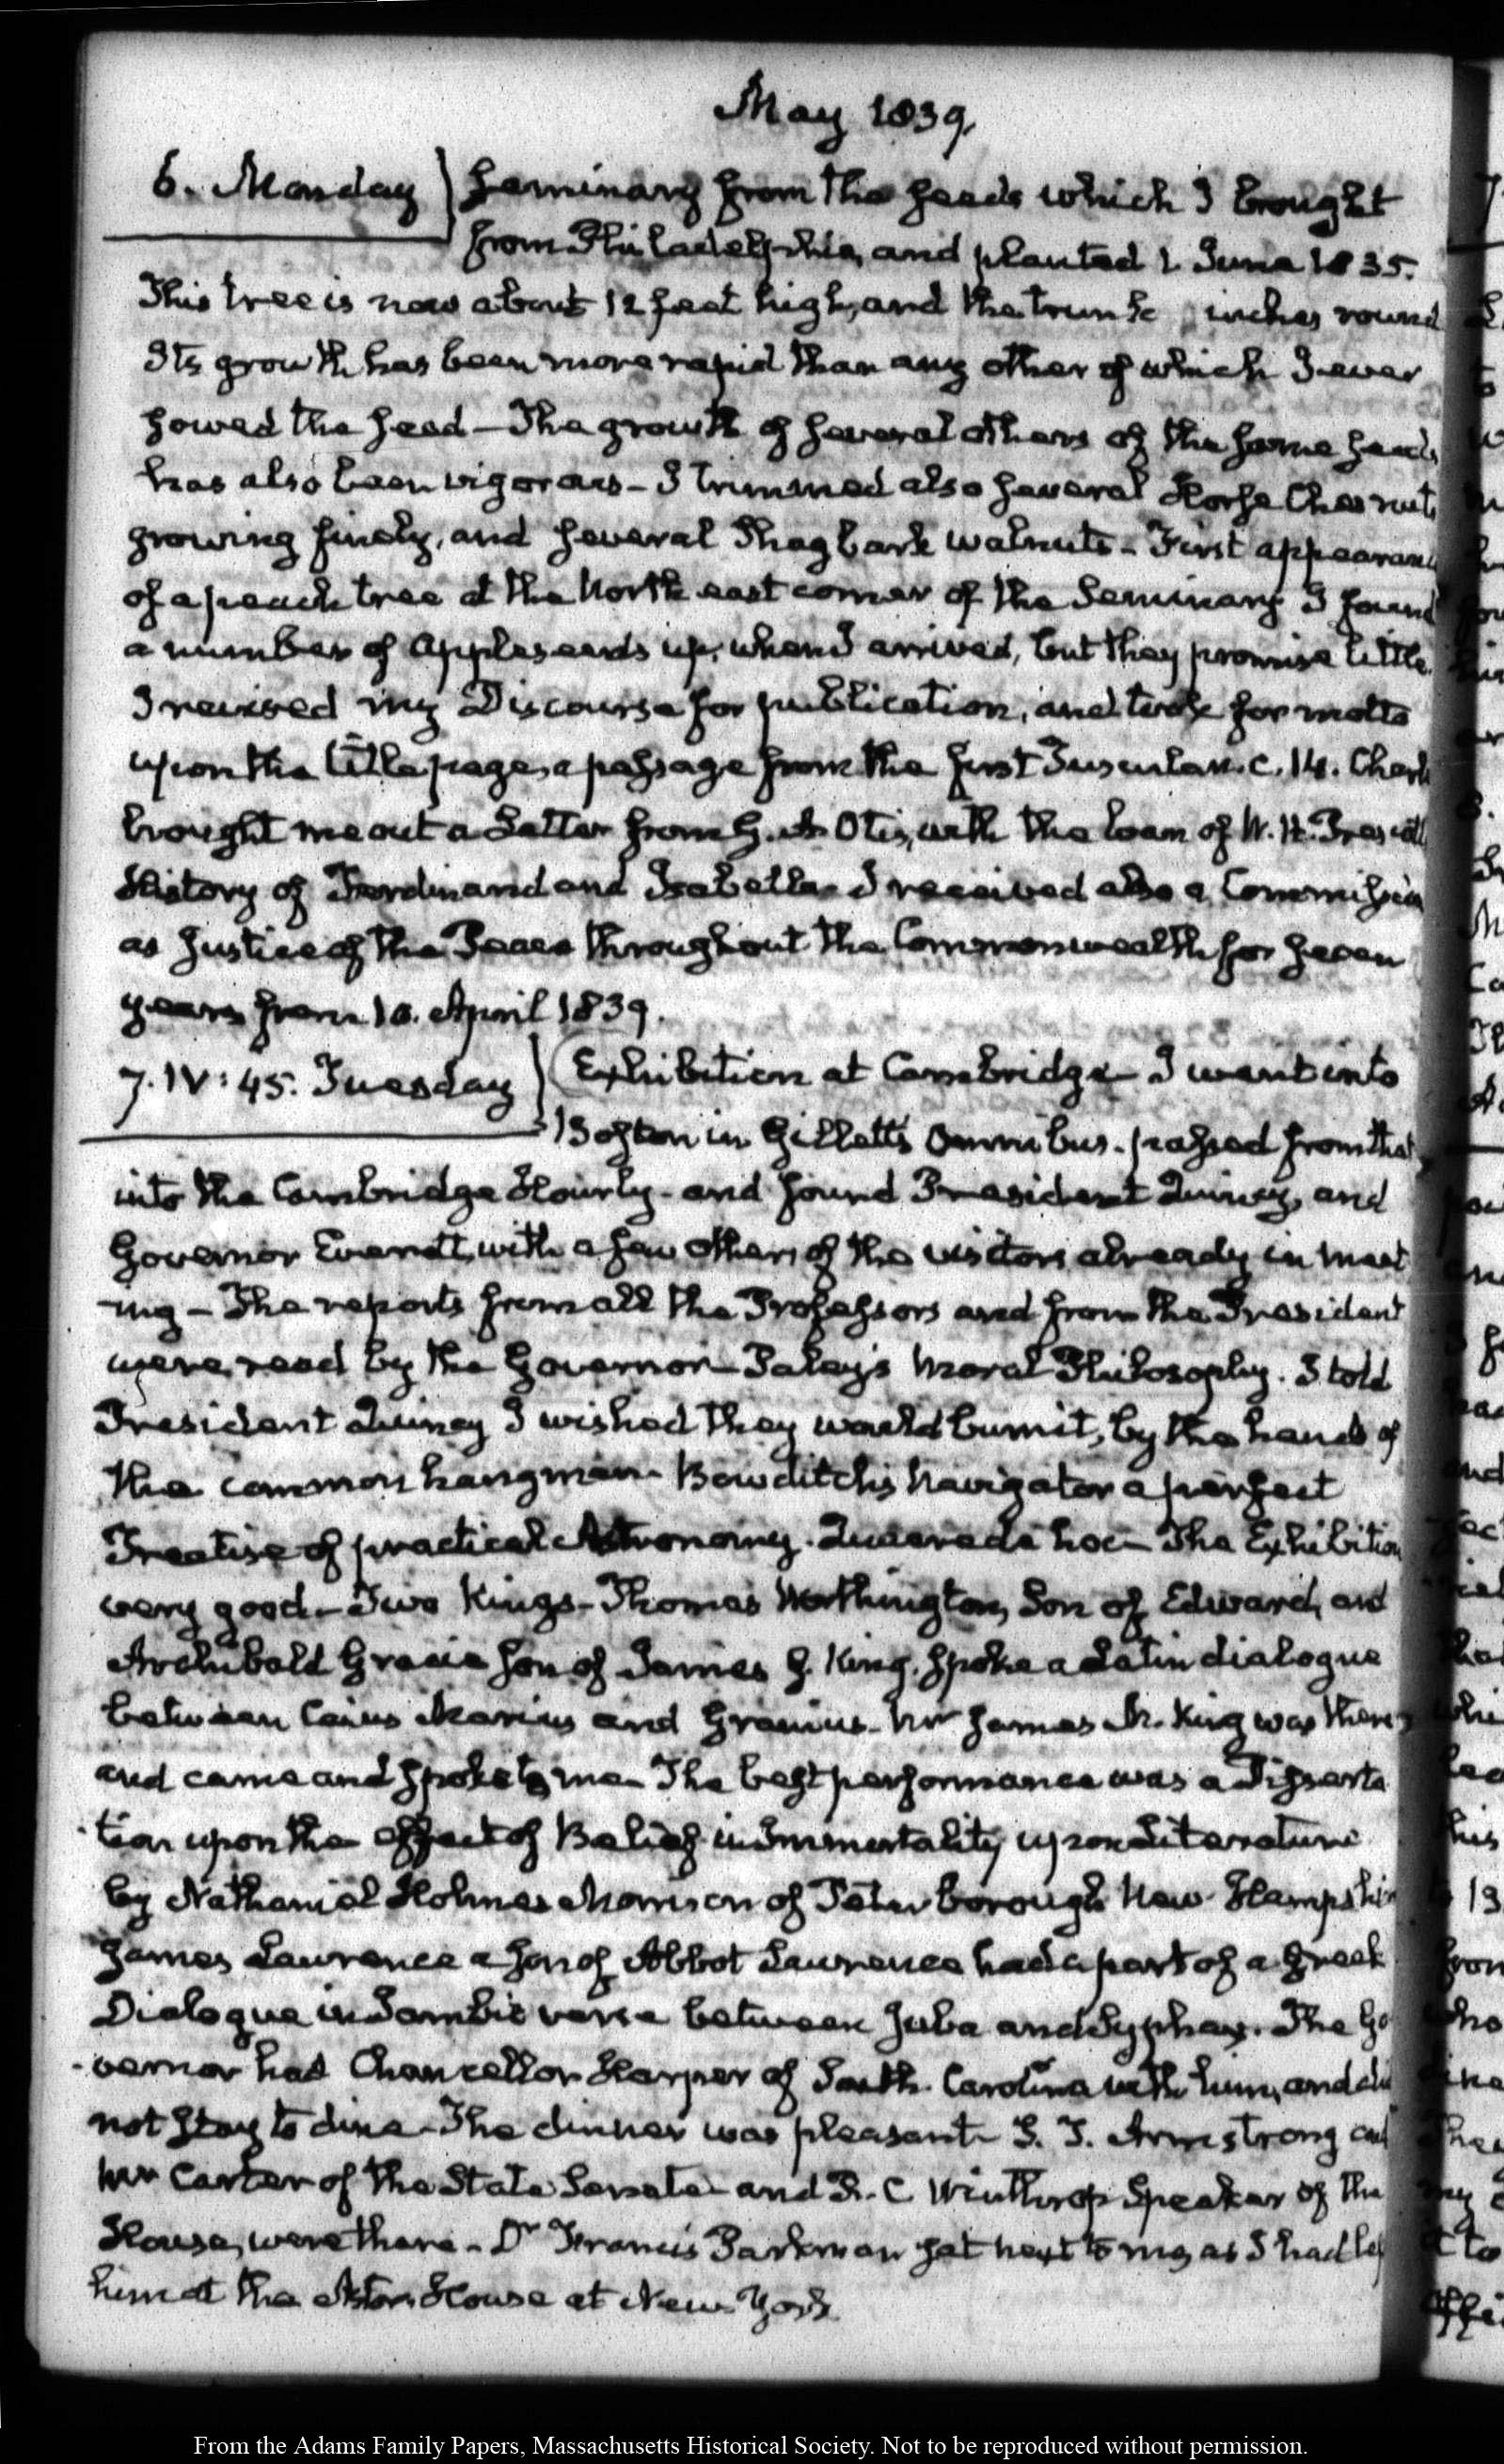 May 1839.
6. Monday
Seminary from the seeds which I brought
from Philadelphia, and planted 1 June 1835.
This tree is now about 12 feet high, and the trunk inches round
Its growth has been more rapid than any other of which I ever
sowed the seed — The growth of several others of the same seeds
has also been vigorous — I trimmed also several Horse Chesnuts
growing finely, and several Shagbark walnuts — First appearance
of a peach tree at the North east corner of the Seminary I found
a number of Appleseeds up, when I arrived, but they promise little
I revised my Discourse for publication, and took for motto
upon the title page, a passage from the first Tusculan. c. 14. Charles
brought me out a Letter from H. G. Otis, with the loan of W. H. Prescott's
History of Ferdinand and Isabella — I received also a Commission
as Justice of the Peace throughout the Commonwealth for seven
years from 10. April 1839.
7. IV: 45. Tuesday
Exhibition at Cambridge — I went into
Boston in Gillett's Omnibus. passed from that
into the Cambridge Hourly — and found President Quincy, and
Governor Everett, with a few others of the visitors already in meet
ing — The reports from all the Professors and from the President
were read by the Governor — Paley's Moral Philosophy. I told
President Quincy I wished they would burn it, by the hands of
the common hangman — Bowditch's Navigator a perfect
Treatise of practical Astronomy. Quaere de hoc — The Exhibition
very good — Two Kings — Thomas Worthington, Son of Edward, and
Archibald Gracie son of James G. King, spoke a Latin dialogue
between Caius Marius and Granius — Mr James G. King was there
and came and spoke to me — The best performance was a Disserta
tion upon the effect of Belief in Immortality upon Literature
by Nathaniel Holmes Morrison of Peterborough New Hampshire
James Lawrence a son of Abbot Lawrence had a part of a Greek
Dialogue in Iambic verse between Juba and Syphax. The Go
vernor had Chancellor Harper of South Carolina with him, and did
not stay to dine — The dinner was pleasant — S. T. Armstrong and
Mr Carter of the State Senate — and R. C. Winthrop Speaker of the
House, were there — Dr Francis Parkman sat next to me, as I had left
him at the Astor House at New York
From the Adams Family Papers, Massachusetts Historical Society. Not to be reproduced without permission.